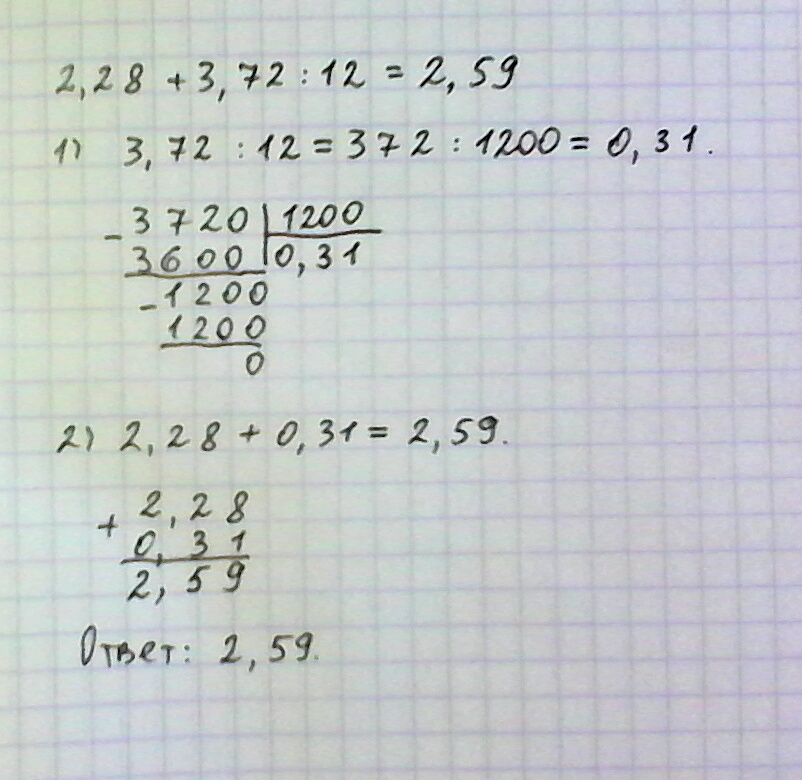 2,28 + 3,72 : 12 = 2,59
1) 3,72 : 12 = 372 : 1200 = 0,31.
- 3720 | 1200
3600 | 0,31
- 1200
1200
0
2) 2,28 + 0,31 = 2,59.
+ 2,28
0,31
2,59
Ответ: 2,59.